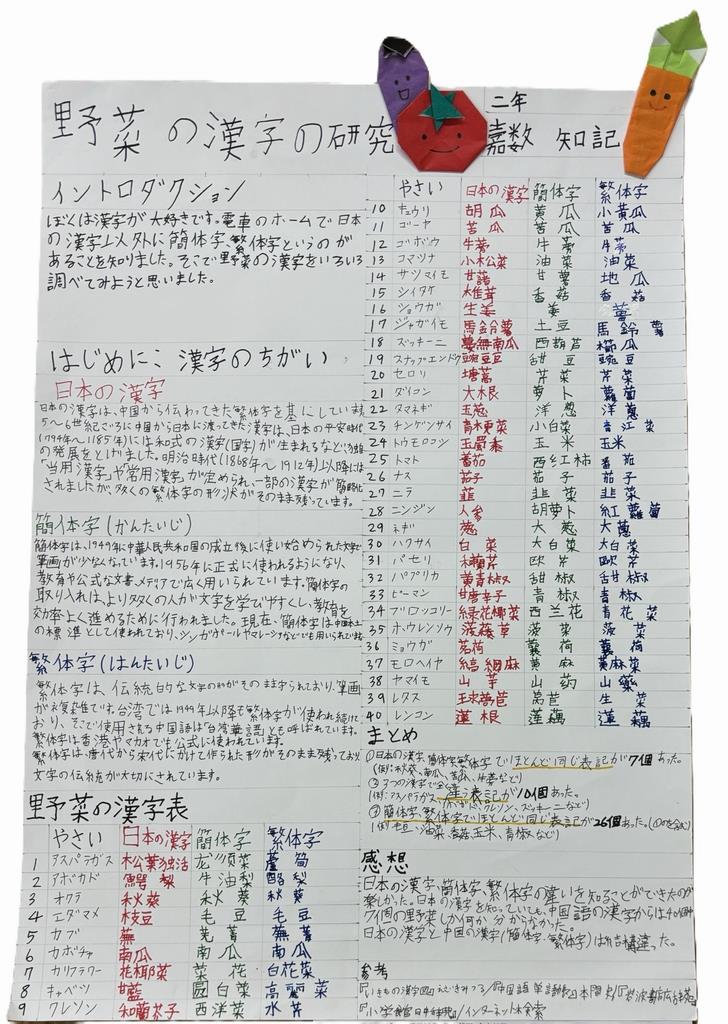 野菜の漢字の研究
二年
嘉数 知記
イントロダクション
ぼくは漢字が大好きです。電車のホームで日本
の漢字以外に簡体字、繁体字というのが
あることを知りました。そこで野菜の漢字をいろいろ
調べてみようと思いました。
はじめに: 漢字のちがい
日本の漢字
日本の漢字は、中国から伝わってきた繁体字を基にしています。
5〜6世紀ごろに中国から日本に渡ってきた漢字は、日本の平安時代
(794年〜1185年)には和式の漢字(国字)が生まれるなど
の発展をとげました。明治時代(1868年〜1912年)以降には
「当用漢字」や「常用漢字」が定められ、一部の漢字が簡略化
されましたが、多くの繁体字の形がそのまま残っています。
簡体字(かんたいじ)
簡体字は、1949年に中華人民共和国の成立後に使い始められた文字で、
筆画が少なくなっています。1956年に正式に使われるようになり、
教育や公式な文書、メディアで広く用いられています。簡体字の
取り入れは、より多くの人が文字を学びやすくし、教育を
効率よく進めるために行われました。現在、簡体字は中国本土
の標準として使われており、シンガポールやマレーシアなどでも用いられています
繁体字(はんたいじ)
繁体字は、伝統的な文字の形がそのまま守られており、筆画
が複雑です。台湾では1949年以降も繁体字が使われ続けて
おり、そこで使用される中国語は「台湾華語」とも呼ばれています。
繁体字は香港やマカオでも公式に使われています。
繁体字は唐代から宋代にかけて作られた形がそのまま残っており
文字の伝統が大切にされています。
野菜の漢字表
やさい 日本の漢字 簡体字 繁体字
1 アスパラガス 松葉独活 龙须菜 蘆筍
2 アボカド 鰐梨 牛油梨 酪梨
3 オクラ 秋葵 秋葵 秋葵
4 エダマメ 枝豆 毛豆 毛豆
5 カブ 蕪 芜菁 蕪菁
6 カボチャ 南瓜 南瓜 南瓜
7 カリフラワー 花椰菜 菜花 白花菜
8 キャベツ 甘藍 圆白菜 高麗菜
9 クレソン 和蘭芥子 西洋菜 水芥
やさい 日本の漢字 簡体字 繁体字
10 キュウリ 胡瓜 黄瓜 小黄瓜
11 ゴーヤ 苦瓜 苦瓜 苦瓜
12 ゴボウ 牛蒡 牛蒡 牛蒡
13 コマツナ 小松菜 油菜 油菜
14 サツマイモ 甘藷 甘薯 地瓜
15 シイタケ 椎茸 香菇 香菇
16 ショウガ 生姜 姜 薑
17 ジャガイモ 馬鈴薯 土豆 馬鈴薯
18 ズッキーニ 蔓無南瓜 西葫芦 櫛瓜
19 スナップエンドウ 豌豆 甜豆 豌豆
20 セロリ 塘蒿 芹菜 芹菜
21 ダイコン 大根 萝卜 蘿蔔
22 タマネギ 玉葱 洋葱 洋蔥
23 チンゲンサイ 青梗菜 小白菜 青江菜
24 トウモロコシ 玉蜀黍 玉米 玉米
25 トマト 蕃茄 西红柿 番茄
26 ナス 茄子 茄子 茄子
27 ニラ 韮 韭菜 韭菜
28 ニンジン 人参 胡萝卜 紅蘿蔔
29 ネギ 葱 大葱 大蔥
30 ハクサイ 白菜 大白菜 大白菜
31 パセリ 和蘭芹 欧芹 歐芹
32 パプリカ 黄青椒 甜椒 甜椒
33 ピーマン 甘唐辛子 青椒 青椒
34 ブロッコリー 緑花椰菜 西兰花 青花菜
35 ホウレンソウ 菠薐草 菠菜 菠菜
36 ミョウガ 茗荷 蘘荷 蘘荷
37 モロヘイヤ 縞綱麻 黄麻 黄麻菜
38 ヤマイモ 山芋 山药 山藥
39 レタス 球萵苣 莴苣 生菜
40 レンコン 蓮根 莲藕 蓮藕
まとめ
①日本の漢字、簡体字、繁体字でほとんど同じ表記が7個あった。
(例:秋葵、南瓜、苦瓜、牛蒡など)
②3つの漢字で全く違う表記が10個あった。
(例:アスパラガス、アボカド、クレソン、ズッキーニなど)
③簡体字、繁体字でほとんど同じ表記が26個あった。(①のを含む)
(例:毛豆、油菜、香菇、玉米、青椒など)
感想
日本の漢字、簡体字、繁体字の違いを知ることができたのが
楽しかった。日本の漢字を知っていても、中国語の漢字からは40個中
7個の野菜しか何か分からなかった。
日本の漢字と中国の漢字(簡体字、繁体字)は結構違った。
参考